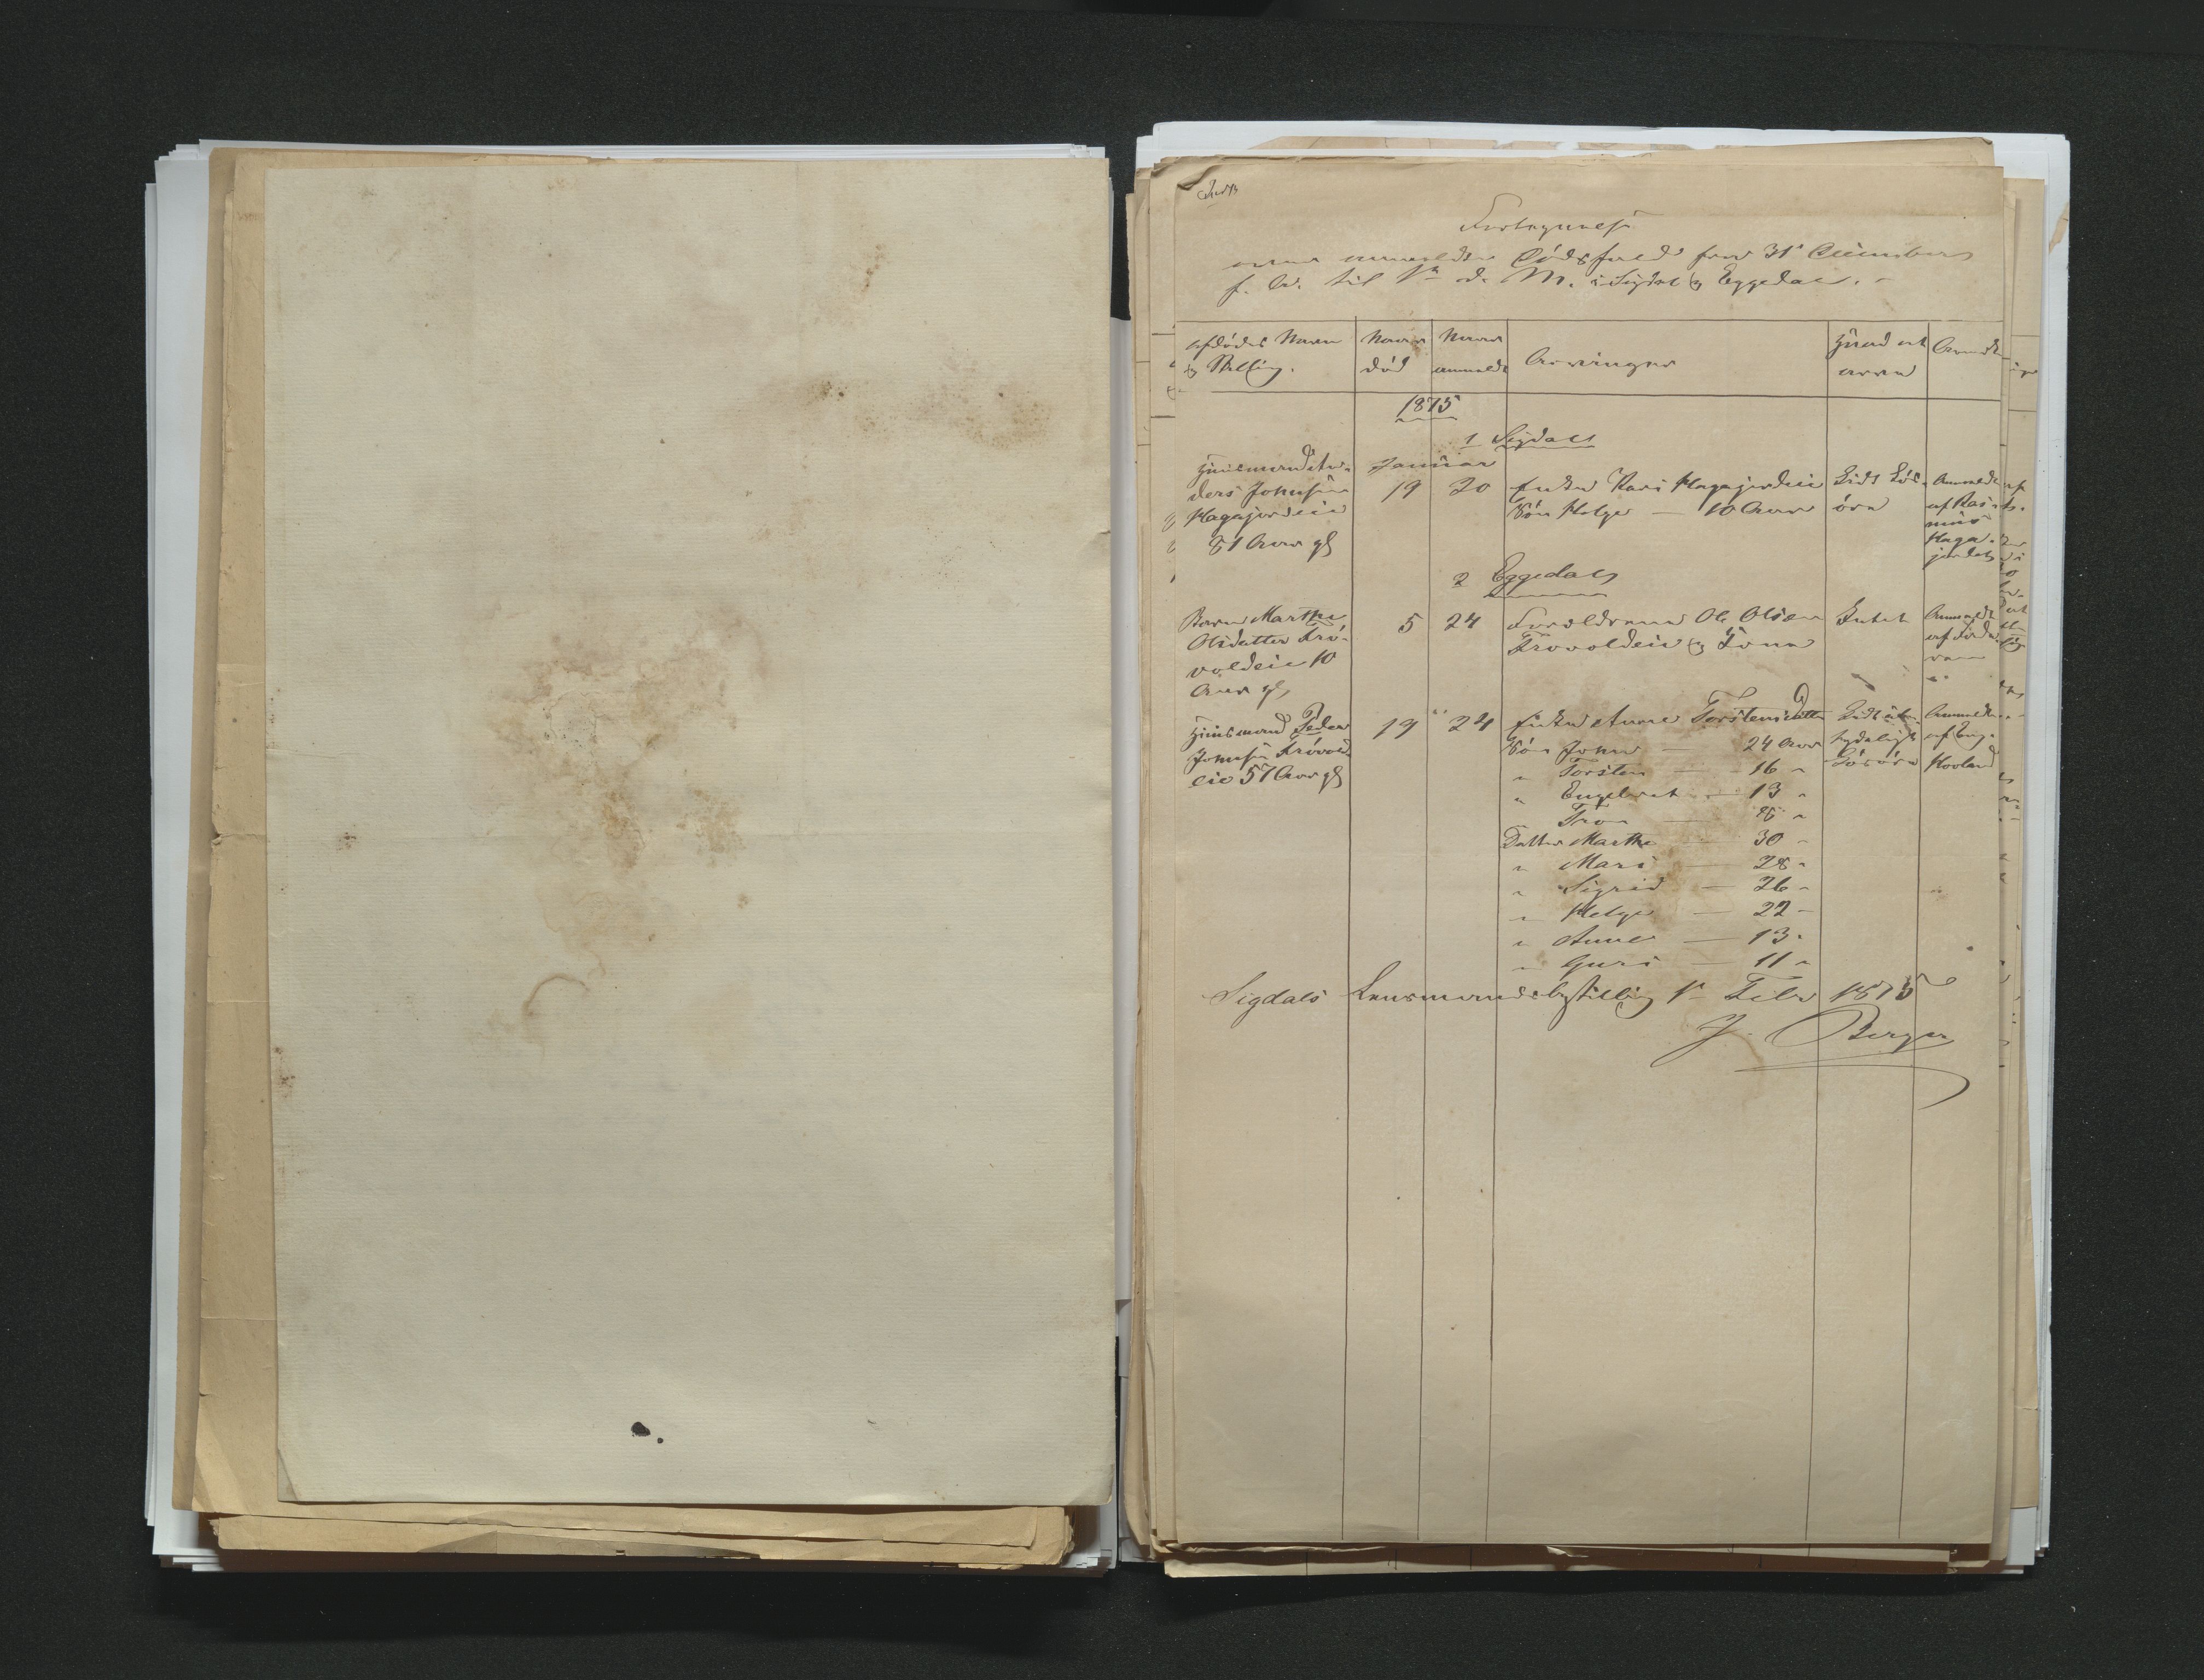 Fortegnelse
over anmeldte Dödsfald fra 31' December
f. A. til 1ste d. M. i Sigdal og Eggedal. -
afdödes Navn
& Stilling.
Naar
död
Naar
anmeldt
Arvinger
Hvad at
arve
Anmkn
1875
1 Sigdal
Januar
Huusmand An-
ders Johnsen
Hagajordeie
81 Aar gl
19
20
Enken Kari Hagajordeie
Sön Helge — 10 Aar
Lidt Lös-
öre
Anmeldt
af Ras-
mus
Haga-
jordet
2 Eggedal
Barn Marthe
Olsdatter Frö-
voldeie 10
Aar gl,
5
24
Forældrene Ole Olsen
Frövoldeie og Kone
Intet
Anmeldt
af Fade-
ren
Huusmand Peder
Johnsen Frövold-
eie 57 Aar gl
19
" 24
Enken Anne Torstensdatter
Sön John — 24 Aar
" Torsten — 16 "
" Engebret — 13 "
" Tron — 8 "
Datter Marthe — 30 "
" Mari — 28 "
" Sigrid — 26 "
" Helge — 22 "
" Anne — 13 "
" Guri — 11 "
Lidt ube-
tydeligt
Lösöre
Anmeldt
af Eng.
Hovland
Sigdals Lensmandsbestilling 1ste Febr 1875
J. Berger